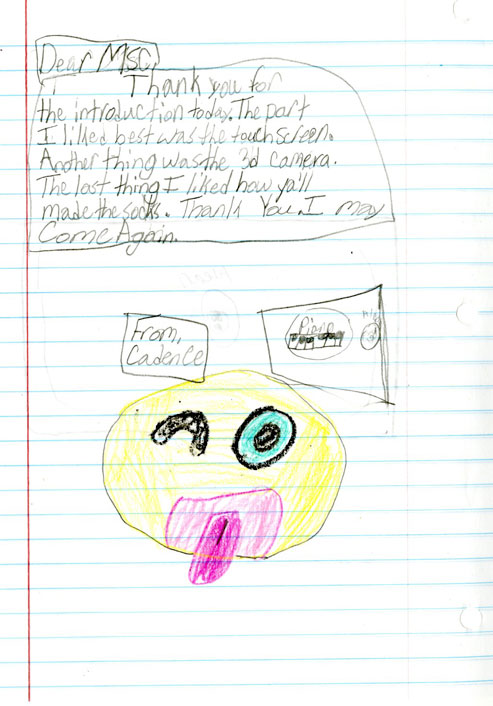 Dear MSC,
Thank you for
the introduction today. The part
I liked best was the touch screen.
Another thing was the 3d camera.
The last thing I liked how ya'll
made the socks. Thank You. I may
Come Again.
From,
Cadence
Piano